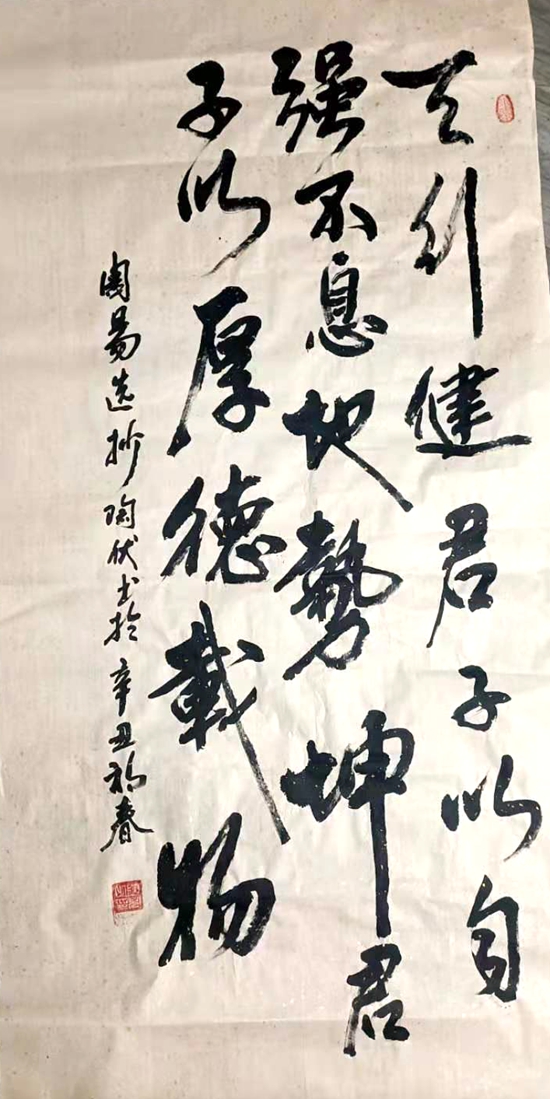 天行健君子以自
强不息地勢坤君
子以厚德載物
周易选抄陶伏书於辛丑初春